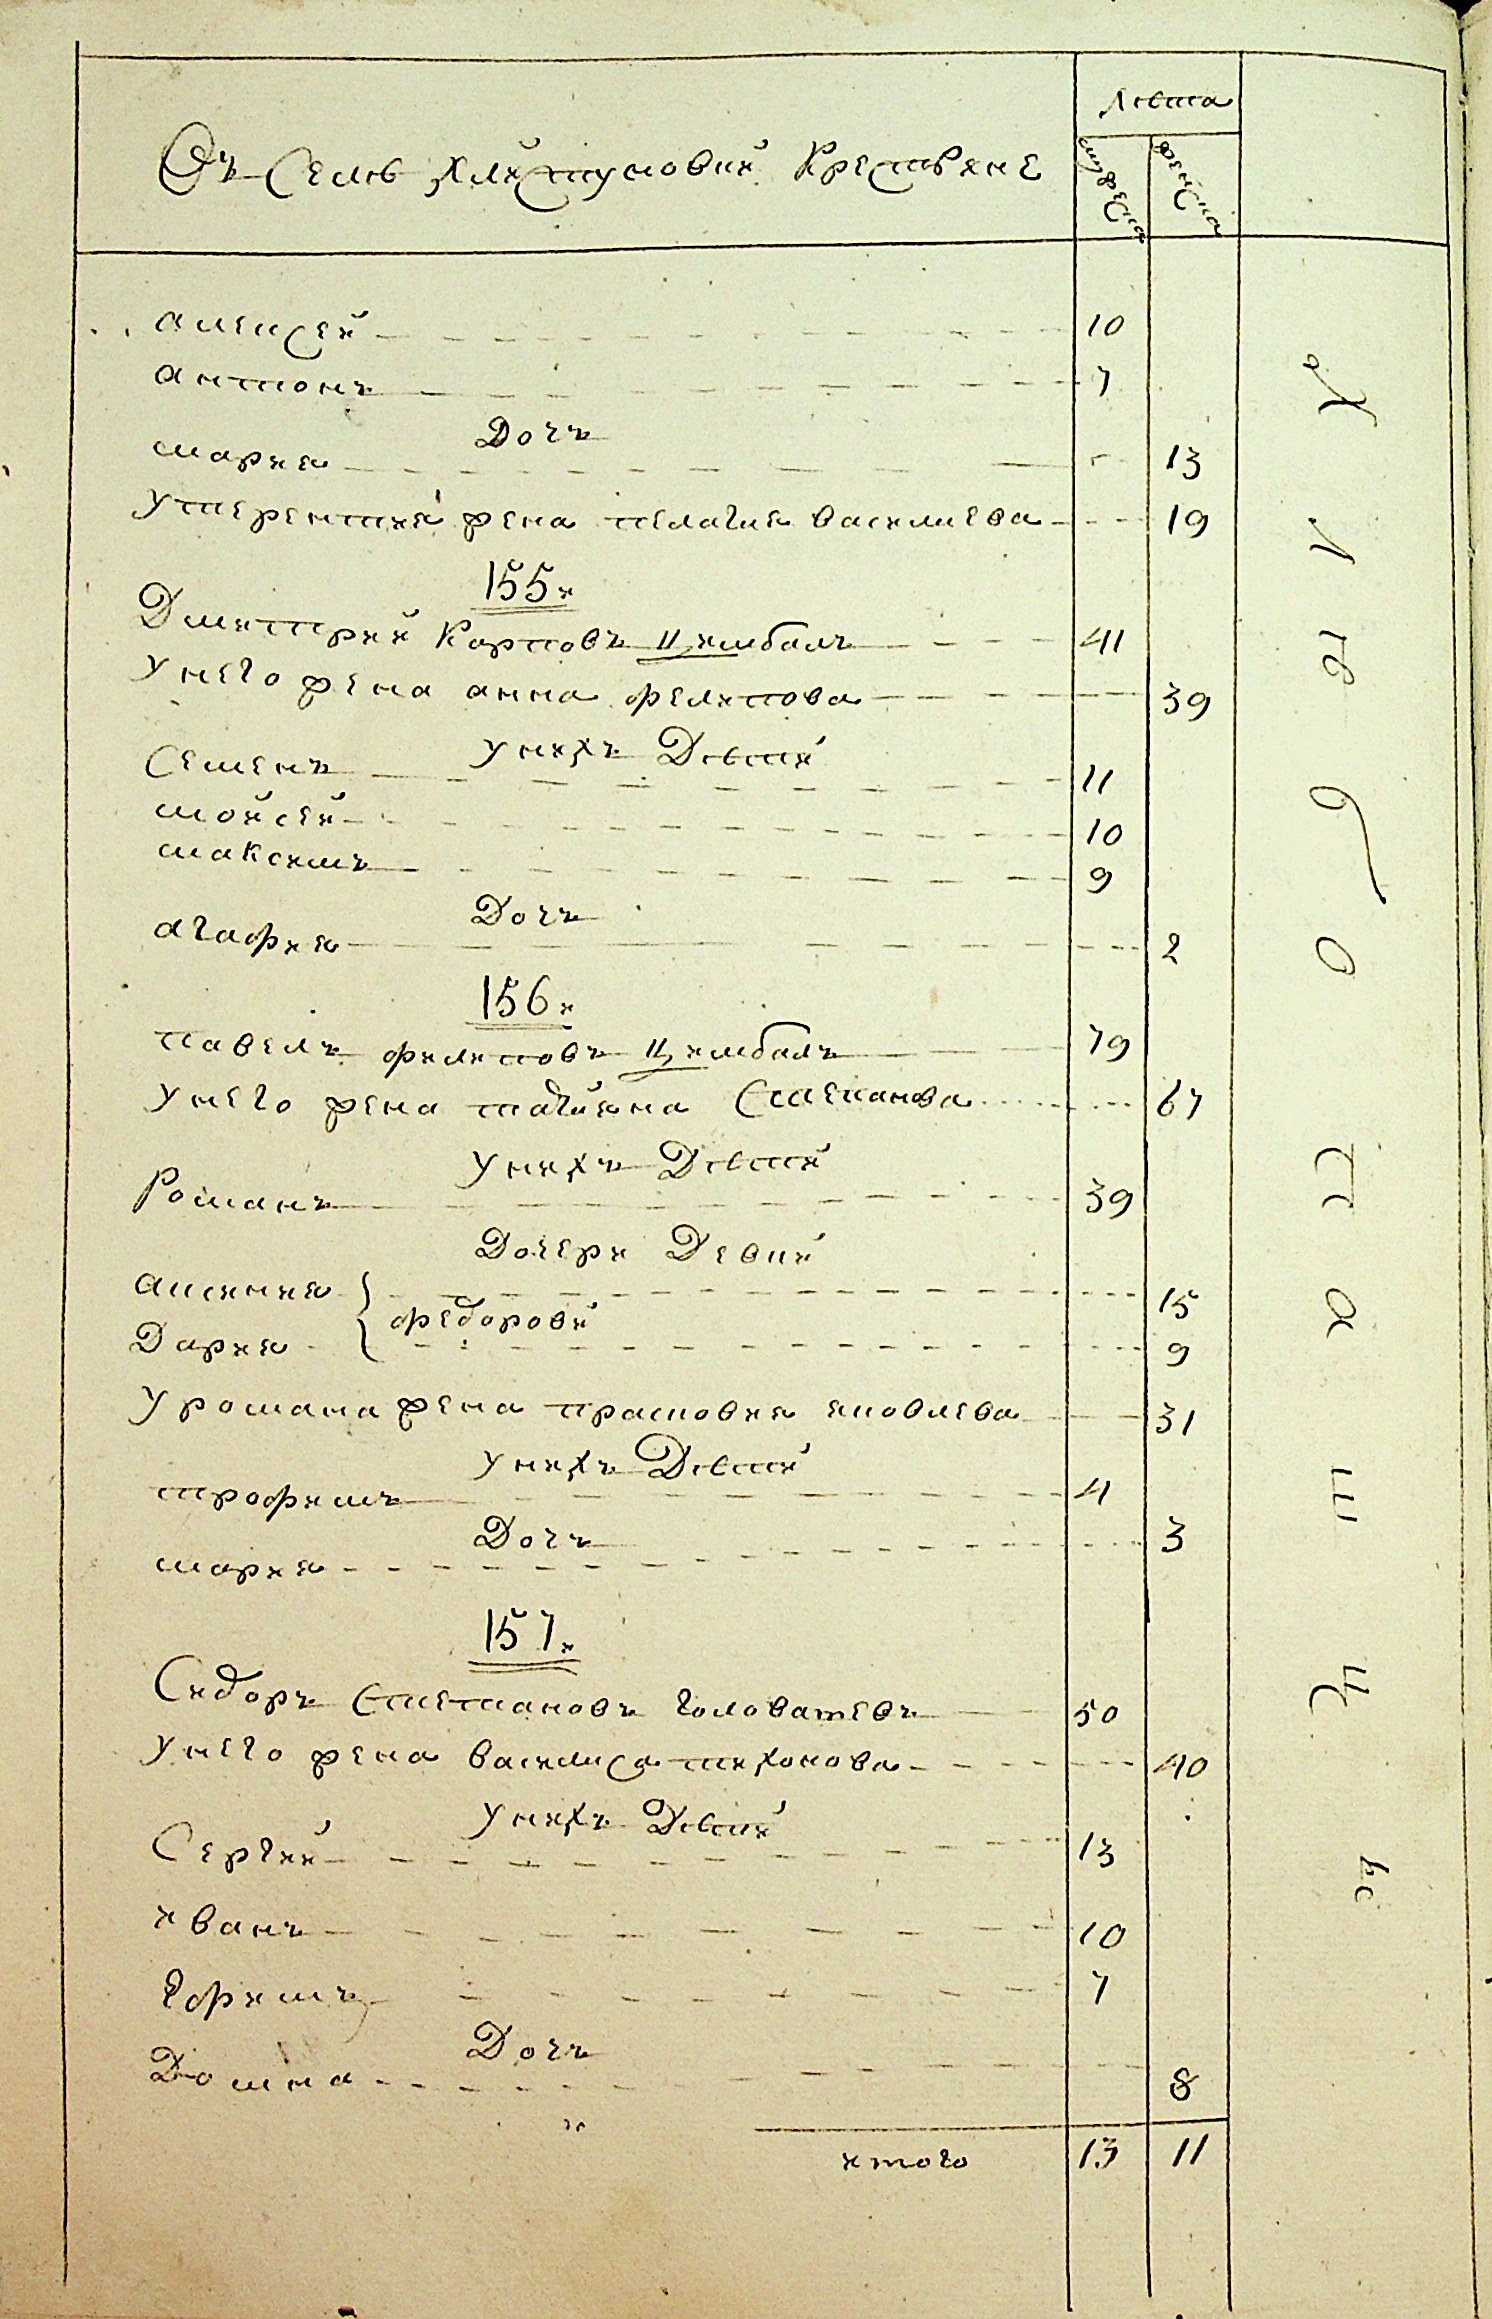 Въ Селѣ Хлистуновки Крестьяне
Лѣта
мужеска
женска
алексей 10
антонъ 7
Дочь
мария 13
у терентия жена пелагия василиева 19
155и
Дмитрий Карповъ Цимбалъ 41
У него жена анна филипова 39
у нихъ Дѣти
Семенъ 11
мойсей 10
максимъ 9
Дочь
агафия 2
156и
павелъ филиповъ Цимбалъ 79
У него жена татияна Степанова 67
У нихъ Дѣти
Романъ 39
Дочери Девки
аксиния 15
федорови
Дария 9
У романа жена прасковия яковлева 31
у нихъ Дѣти
трофимъ 4
Дочь
мария 3
157и
Сидоръ Степановъ головатевъ 50
У него жена василиса тихонова 40
у нихъ Дѣти
Сергий 13
иванъ 10
Ефимъ 7
Дочь
Домна 8
итого 13 11